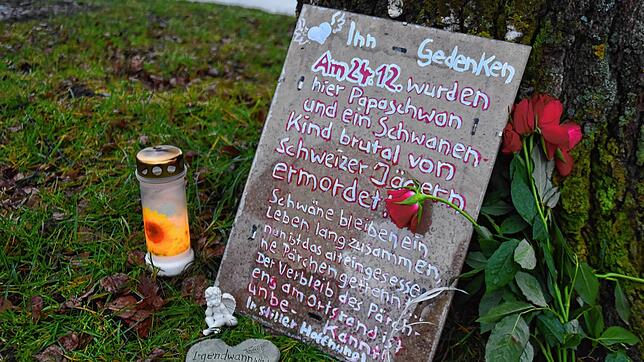 Inn Gedenken
Am 24.12. wurden
hier Papaschwan
und ein Schwanen
Kind brutal von
schweizer Jägern
ermordet.
Schwäne bleiben ein
Leben lang zusammen,
nun ist das alteingesesse
ne Pärchen getrennt
Der Verbleib des Par
ers am Ortsrand ist
unbe Kannt
In stiller
Irgendwann